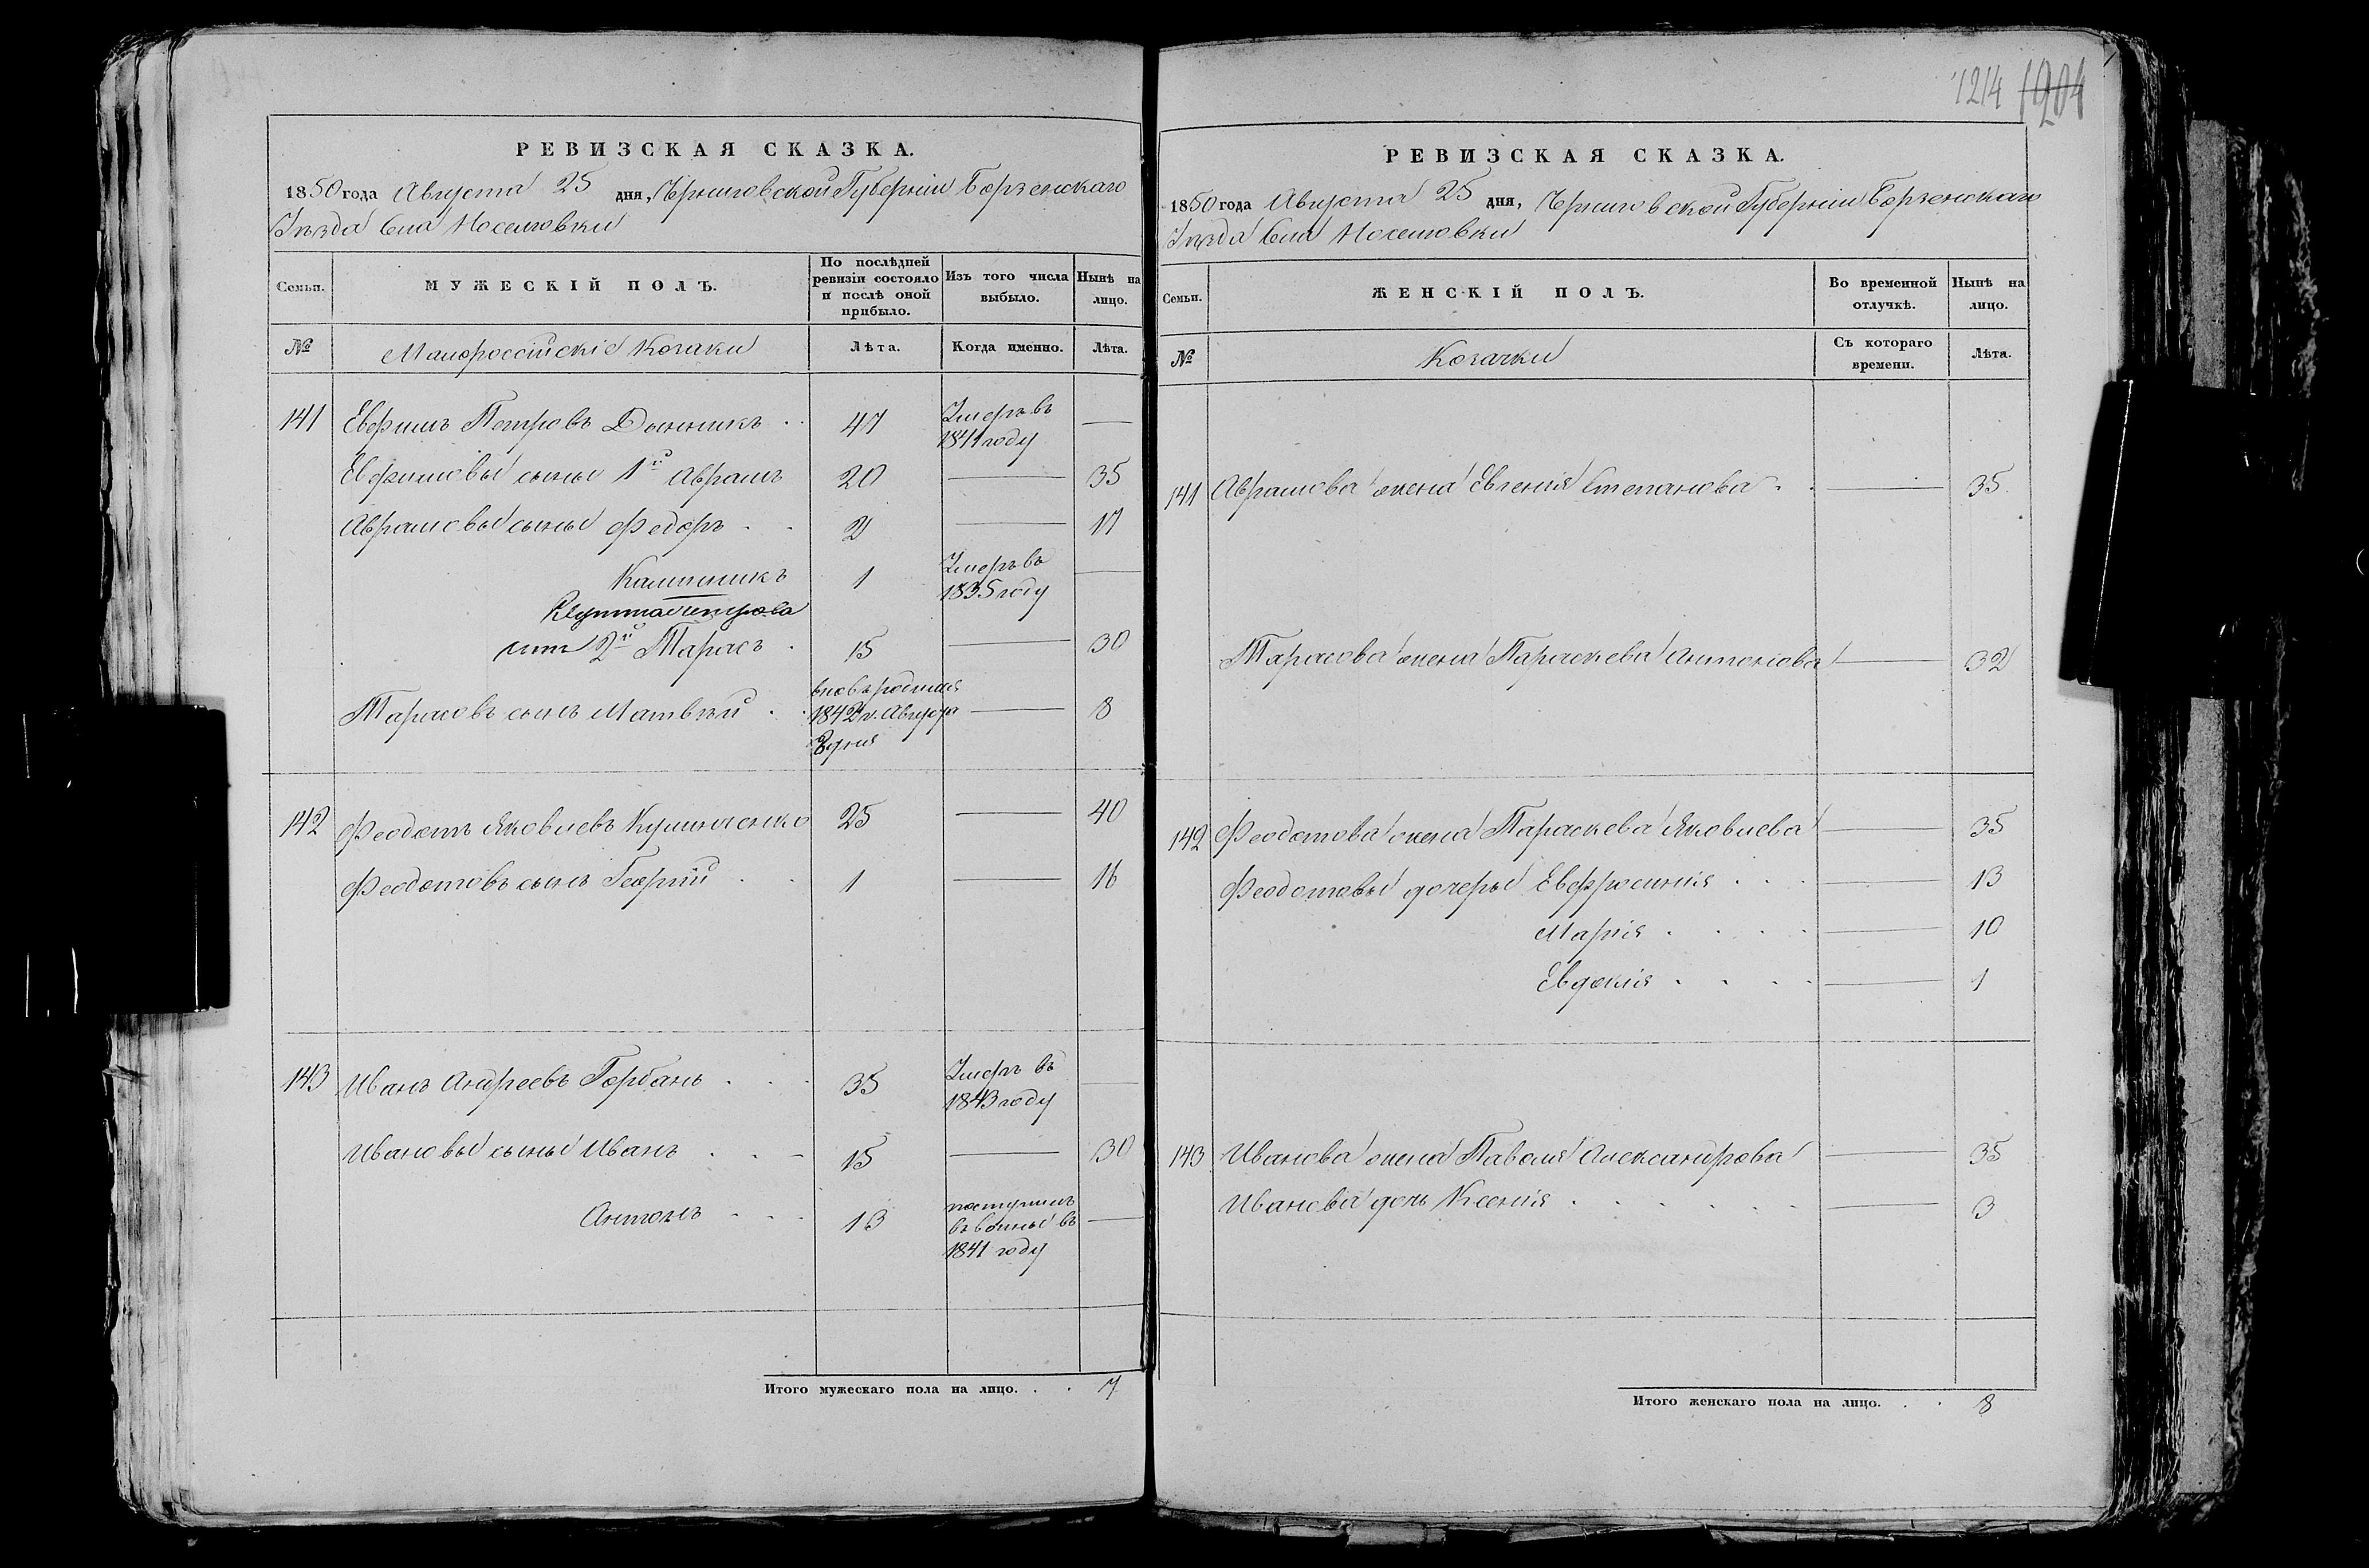 1214 1204
РЕВИЗСКАЯ СКАЗКА.
1850 года Августа 25 дня, Черниговской Губерніи Борзенскаго
Уѣзда Села
Семьи.
МУЖЕСКІЙ ПОЛЪ.
По послѣдней
ревизіи состояло
и послѣ оной
прибыло.
Изъ того числа
выбыло.
Нынѣ на
лицо.
№
Малороссійскіе Козаки
Лѣта.
Когда именно.
Лѣта.
141 Евфимъ Петровъ Дынникъ 47 Умеръ въ
1841 году
Евфимовы сыны 1й Аврамъ 20 35
Аврамовы сыны Федоръ 2 17
Калинникъ 1 Умеръ въ
1835 году
2й Тарасъ 15 30
Тарасовъ сынъ Матвѣй вновь родился
1842 г. Августа
8 дня
8
142 Феодотъ Яковлевъ 25 40
Феодотовъ сынъ Георгій 1 16
143 Иванъ Андреевъ Горбань 35 Умеръ въ
1843 году
Ивановы сыны Иванъ 15 30
Антонъ 13 поступилъ
въ въ
1841 году
Итого мужескаго пола на лицо. 7
РЕВИЗСКАЯ СКАЗКА.
1850 года Августа 25 дня, Черниговской Губерніи Борзенскаго
Уѣзда Села
Семьи.
ЖЕНСКІЙ ПОЛЪ.
Во временной
отлучкѣ.
Нынѣ на
лицо.
№
Козачки
Съ котораго
времени.
Лѣта.
141 Аврамова жена Евгенія Степанова 35
Тарасова жена Параскева Антонова 32
142 Феодотова жена Параскева Яковлева 35
Феодотовы дочеры Евфросинія 13
Марія 10
Евдокія 1
143 Иванова жена Александрова 35
Иванова дочь Ксенія 3
Итого женскаго пола на лицо. 8